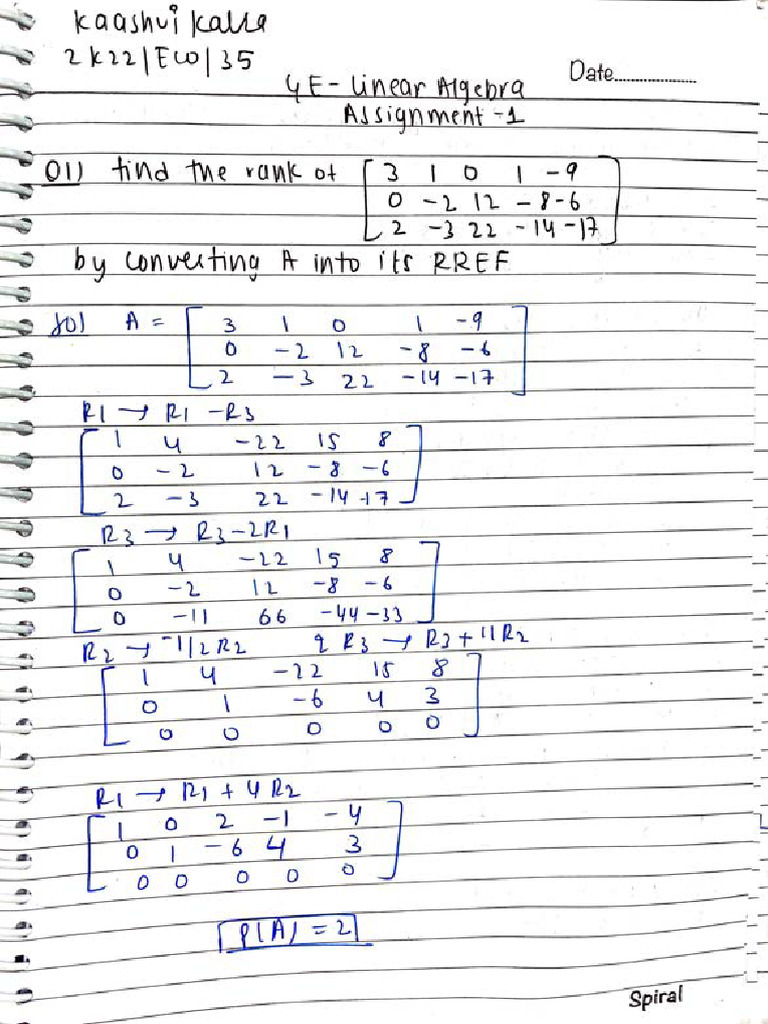 Kaashvi Kalra
2K22/ECO/35
Date..................
GE - Linear Algebra
Assignment -1
Q1) find the rank of [ 3 1 0 1 -9
0 -2 12 -8 -6
2 -3 22 -14 -17 ]
by converting A into its RREF
sol A = [ 3 1 0 1 -9
0 -2 12 -8 -6
2 -3 22 -14 -17 ]
R1 → R1 - R3
[ 1 4 -22 15 8
0 -2 12 -8 -6
2 -3 22 -14 -17 ]
R3 → R3 - 2R1
[ 1 4 -22 15 8
0 -2 12 -8 -6
0 -11 66 -44 -33 ]
R2 → -1/2 R2 & R3 → R3 + 11R2
[ 1 4 -22 15 8
0 1 -6 4 3
0 0 0 0 0 ]
R1 → R1 + 4R2
[ 1 0 2 -1 -4
0 1 -6 4 3
0 0 0 0 0 ]
ρ(A) = 2
Spiral